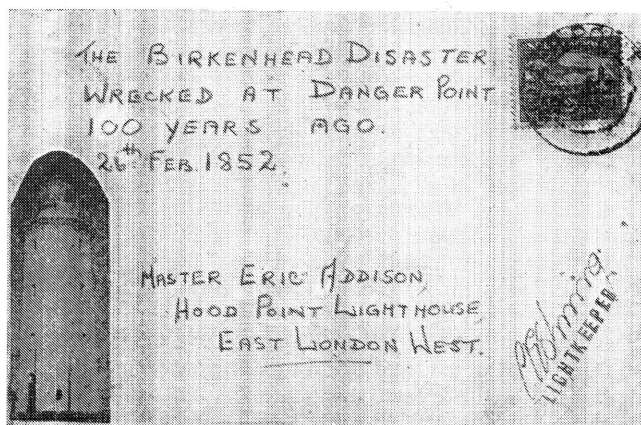 THE BIRKENHEAD DISASTER
WRECKED AT DANGER POINT
100 YEARS AGO.
26th FEB. 1852.
MASTER ERIC ADDISON
HOOD POINT LIGHTHOUSE
EAST LONDON WEST.
LIGHTKEEPER